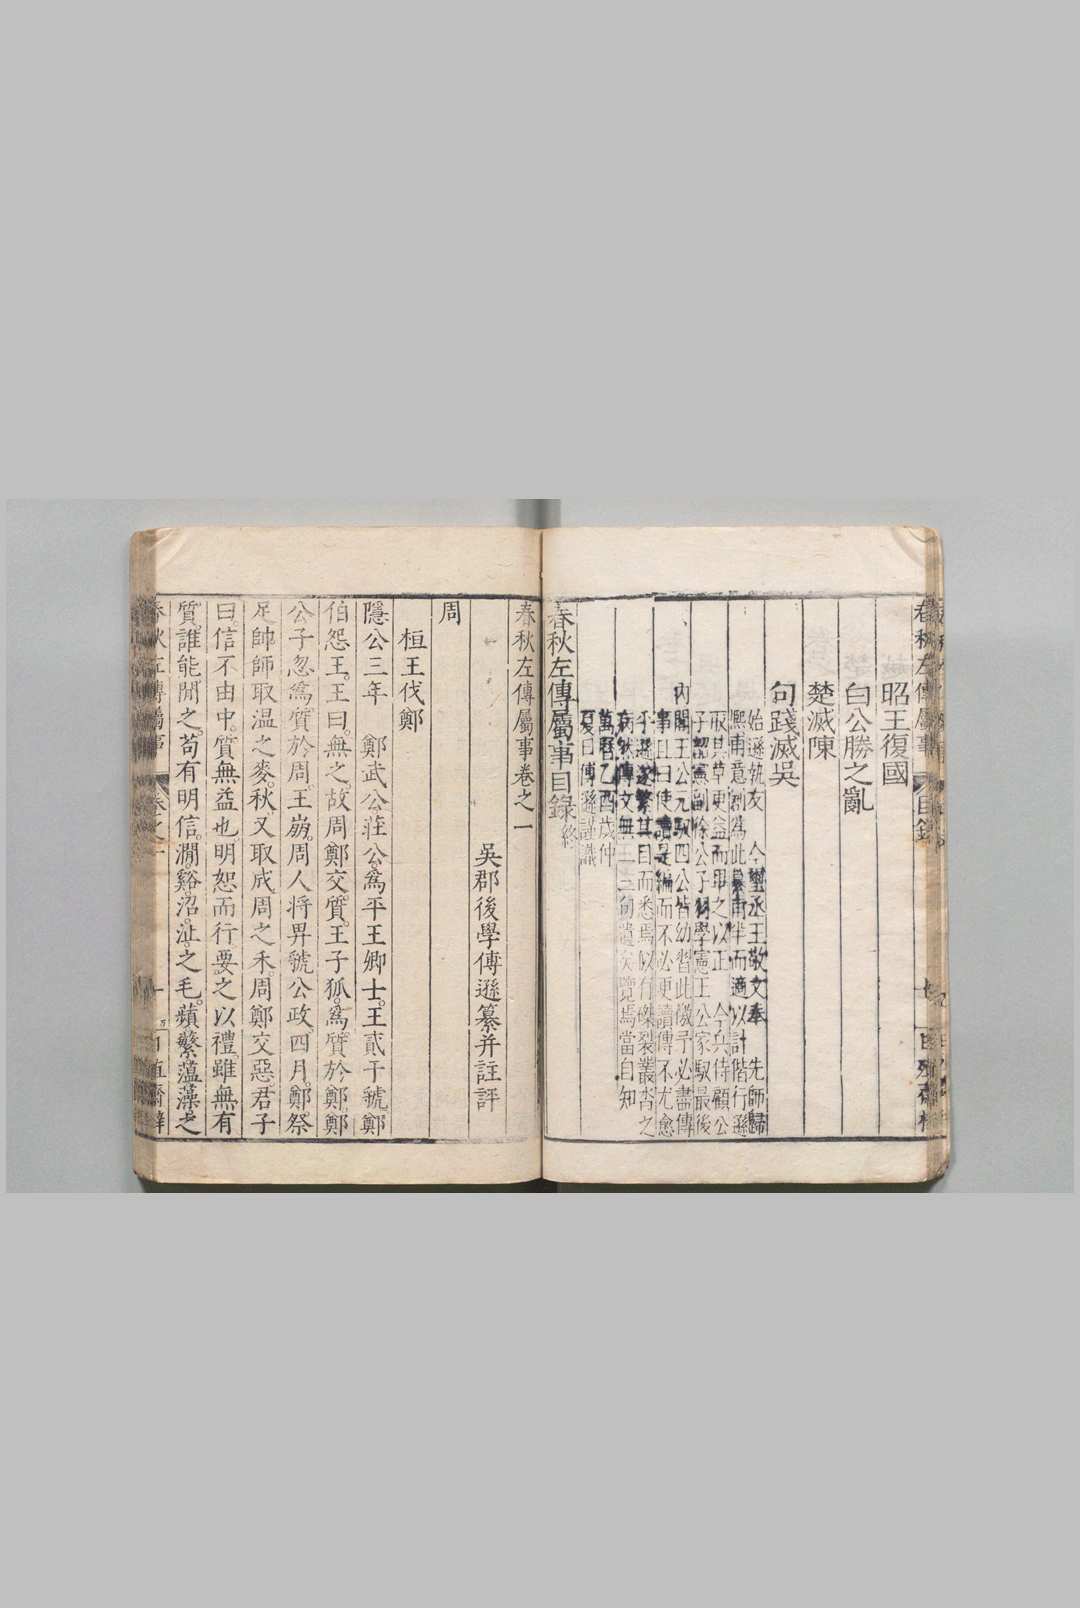 昭王復國
白公勝之亂
楚滅陳
句踐滅吳
始遜執友 今璽丞王敬文奉 先師歸
熙甫意創為此纂甫半而適以計偕行遜
取其草更益而即之以正 今兵侍顧公
子韶憲副徐公子羽學憲王公家馭最後
內閣王公元馭四公皆幼習此機予必盡傳
事且曰使讀是編而不必更讀傳不尤愈
乎遜遂繁其目而悉焉以有磔裂叢沓之
病然傳文無二三句遺矣覽焉當自知
萬曆乙酉歲仲
夏日傅遜謹識
春秋左傳屬事目錄終
春秋左傳屬事卷之一
吳郡後學傅遜纂并註評
周
桓王伐鄭
隱公三年 鄭武公莊公為平王卿士王貳于虢鄭
伯怨王王曰無之故周鄭交質王子狐為質於鄭鄭
公子忽為質於周王崩周人將畀虢公政四月鄭祭
足帥師取溫之麥秋又取成周之禾周鄭交惡君子
曰信不由中質無益也明恕而行要之以禮雖無有
質誰能閒之苟有明信澗谿沼沚之毛蘋蘩薀藻之
春秋左傳屬事 卷之一